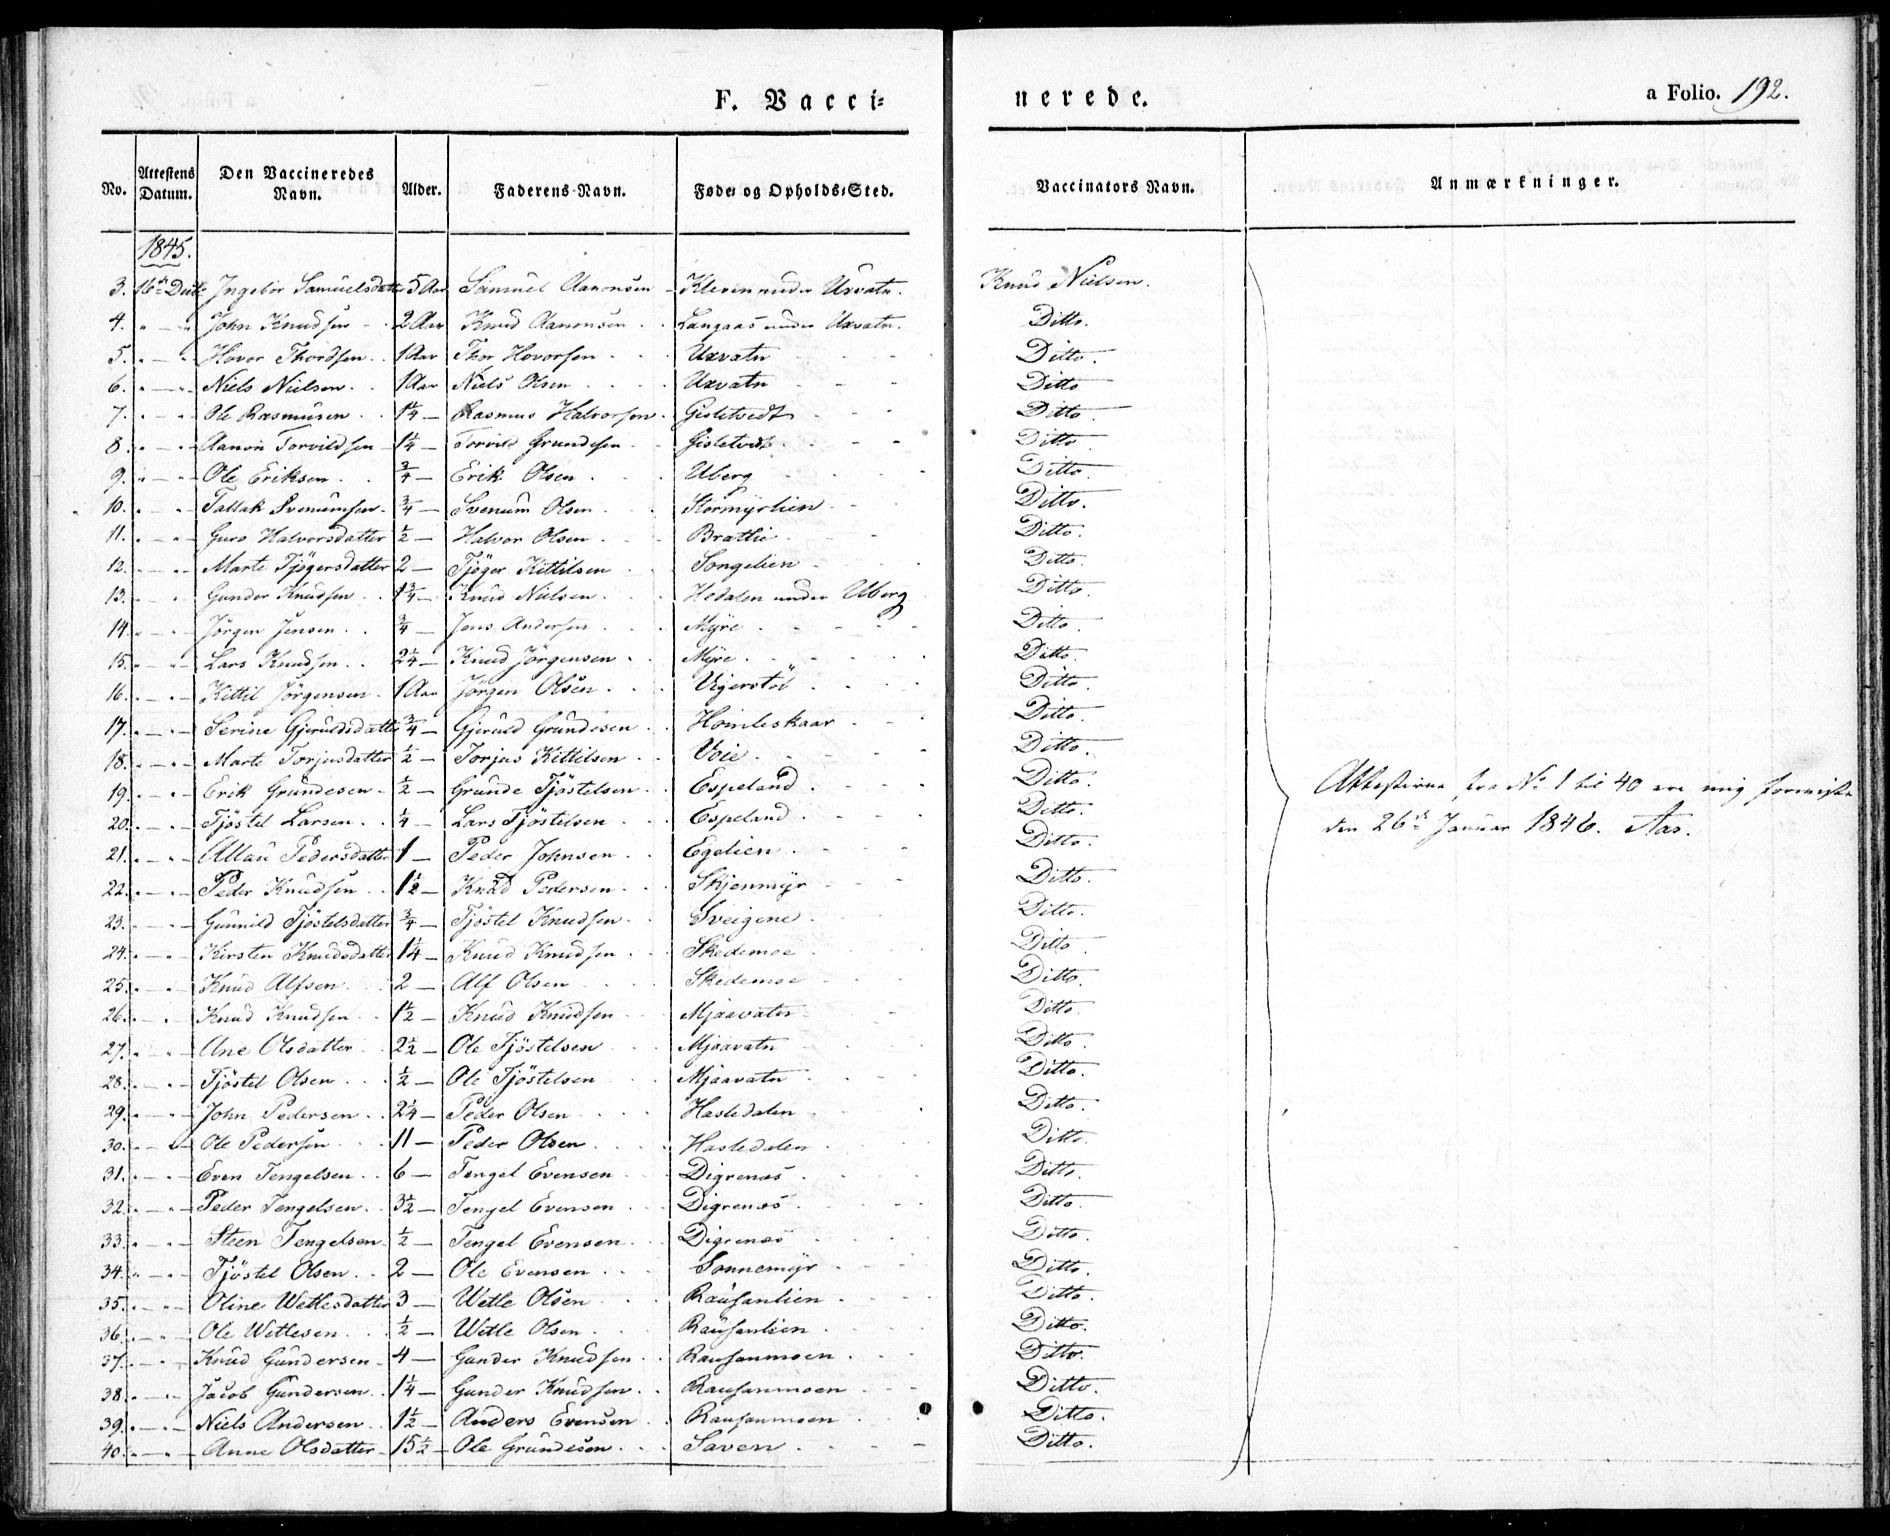 F. Vacci=
nerede.
a Folio. 192.
No. Attestens Datum. Den Vaccineredes Navn. Alder. Faderens-Navn. Føde- og Opholds-Sted. Vaccinators Navn. Anmærkninger.
1845.
3. 16de Ingebor Samuelsdatter 5 Aar Samuel Aanonsen - Klevin under Uxvatn. Knud Nielsen.
4. " — " John Knudsen 2 Aar Knud Aanonsen Langaas under Uxvatn. Ditto.
5. " — " Hovor Thordsen 1 Aar Thor Hovorsen Uxvatn Ditto.
6. " — " Niels Nielsen 1 Aar Niels Olsen Uxvatn Ditto
7. " — " Ole Rasmusen 1¼ — Rasmus Halvorsen Gisletvedt Ditto
8. " — " Aanon Torvildsen 1¼ — Torvild Grundesen Gisletvedt Ditto
9. " — " Ole Eriksen ¾ — Erik Olsen Uberg Ditto
10. " — " Tallak Svenumsen ¾ — Svenum Olsen Stormyrlien Ditto.
11. " — " Guro Halvorsdatter ½ — Halvor Olsen Bratlie Ditto.
12. " — " Marte Tjøgersdatter 2 — Tjøger Kittilsen Songelien Ditto.
13. " — " Gunder Knudsen 1¾ — Knud Nielsen Hedalen under Uberg Ditto.
14. " — " Jørgen Jensen ¾ — Jens Andersen Myre Ditto.
15. " — " Lars Knudsen 2¼ — Knud Jørgensen Myre Ditto.
16. " — " Kittil Jørgensen 1 Aar Jørgen Olsen Vigerstøl Ditto.
17. " — " Serine Gjeruldsdatter ¾ — Gjeruld Grundesen Homleskaar Ditto.
18. " — " Marte Torjusdatter ½ — Torjus Kittilsen Voie Ditto.
19. " — " Erik Grundesen ½ — Grunde Tjøstelsen Espeland Ditto.
20. " — " Tjøstel Larsen ¼ — Lars Tjøstelsen Espeland Ditto.
21. " — " Allau Pedersdatter 1 — Peder Johnsen Egelien Ditto.
22. " — " Peder Knudsen 1½ — Knud Pedersen Skjenmyr Ditto.
23. " — " Gunnild Tjøstelsdatter ¾ — Tjøstel Knudsen Sveigene Ditto.
24. " — " Kirsten Knudsdatter 1¼ — Knud Knudsen Skedemoe Ditto
25. " — " Knud Alfsen 2 — Alf Olsen Skedemoe Ditto.
26. " — " Knud Knudsen 1½ — Knud Knudsen Mjaavatn Ditto.
27. " — " Ane Olsdatter 2½ — Ole Tjøstelsen Mjaavatn Ditto.
28. " — " Tjøstel Olsen ½ — Ole Tjøstelsen Mjaavatn Ditto.
29. " — " John Pedersen 2¼ — Peder Olsen Hasledalen Ditto.
30. " — " Ole Pedersen 11 — Peder Olsen Hasledalen Ditto.
31. " — " Even Tengelsen 6 — Tengel Evensen Digrenæs Ditto.
32. " — " Peder Tengelsen 3½ — Tengel Evensen Digrenæs Ditto.
33. " — " Steen Tengelsen ½ — Tengel Evensen Digrenæs Ditto.
34. " — " Tjøstel Olsen 2 — Ole Evensen Sonnemyr Ditto.
35. " — " Oline Wetlesdatter 3 — Wetle Olsen Rausanlien Ditto.
36. " — " Ole Wetlesen ½ — Wetle Olsen Rausanlien Ditto.
37. " — " Knud Gundersen 4 — Gunder Knudsen Rausanmoen Ditto.
38. " — " Jacob Gundersen 1¼ — Gunder Knudsen Rausanmoen Ditto.
39. " — " Niels Andersen 1½ — Anders Evensen Rausanmoen Ditto.
40. " — " Anne Olsdatter 15½ — Ole Grundesen Saven Ditto.
Attesterne fra No 1 til 40 ere mig
den 26de Januar 1846. Aas.